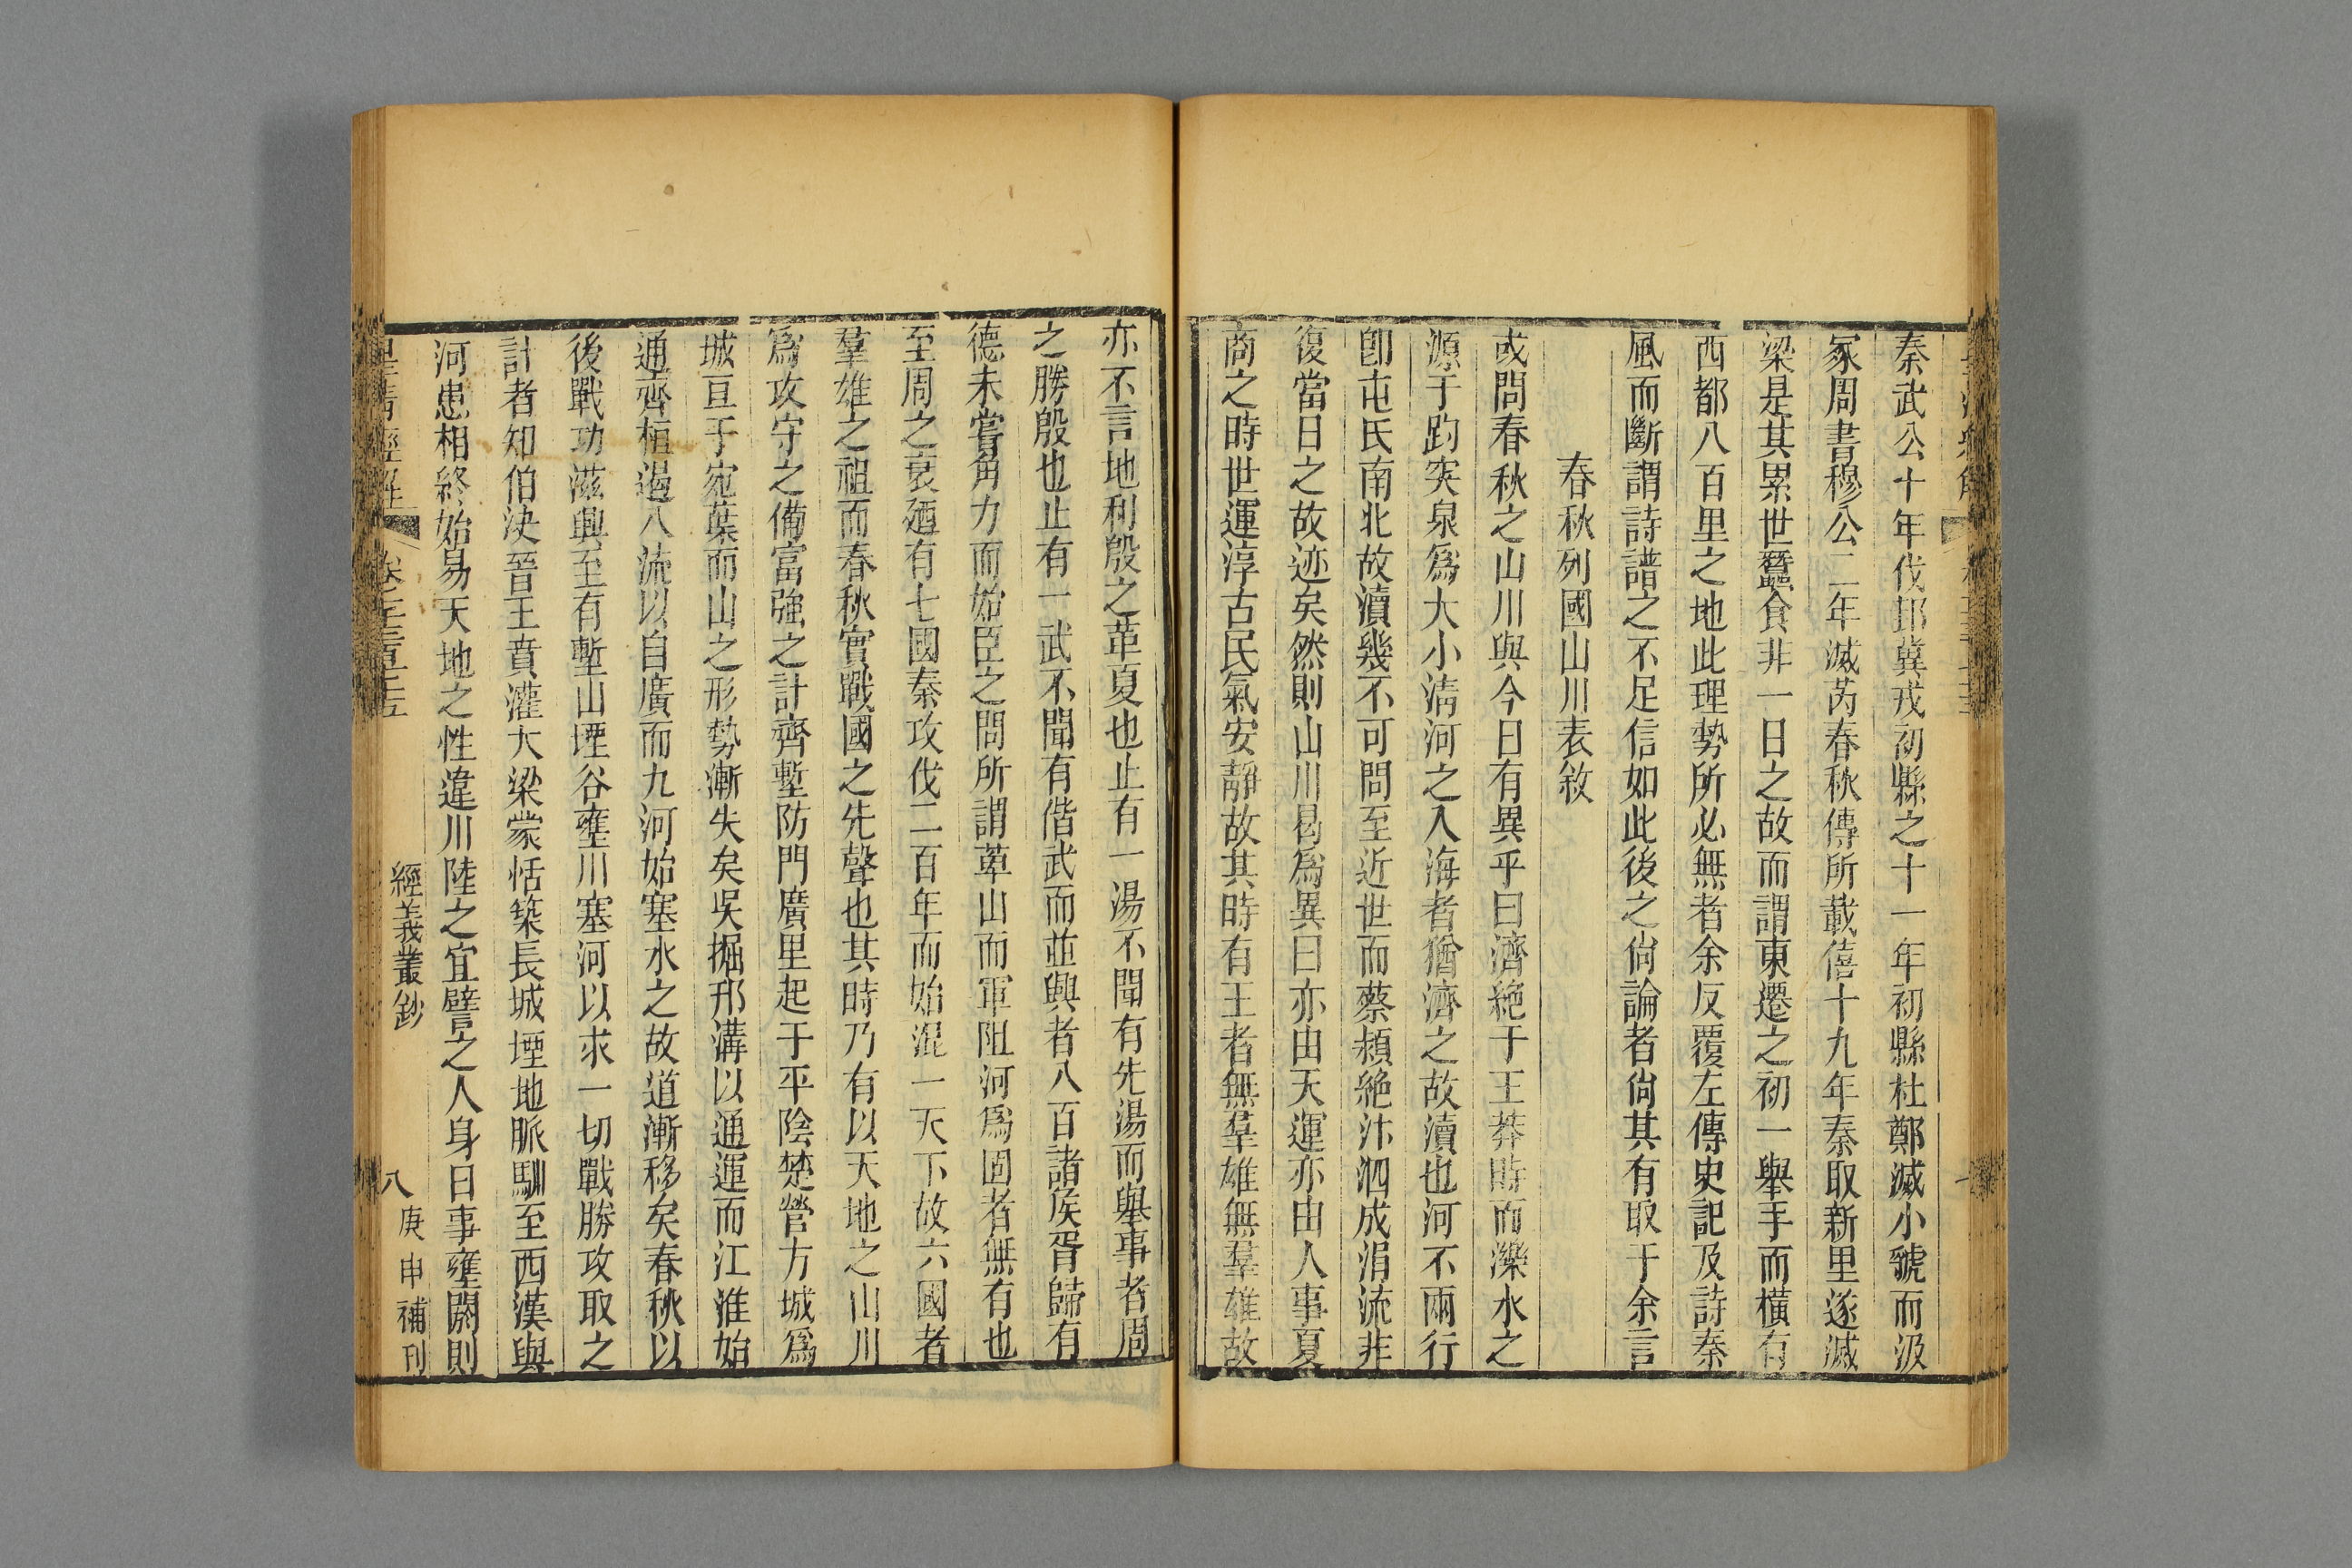 秦武公十年伐邽冀戎初縣之十一年初縣杜鄭滅小虢而汲
冢周書穆公二年滅芮春秋傳所載僖十九年秦取新里遂滅
梁是其累世蠶食非一日之故而謂東遷之初一舉手而橫有
西都八百里之地此理勢所必無者余反覆左傳史記及詩秦
風而斷謂詩譜之不足信如此後之尙論者尙其有取于余言
春秋列國山川表敘
或問春秋之山川與今日有異乎曰濟絶于王莽時而濼水之
源于趵突泉爲大小淸河之入海者猶濟之故瀆也河不兩行
卽屯氏南北故瀆幾不可問至近世而蔡潁絶汴泗成涓流非
復當日之故迹矣然則山川曷爲異曰亦由天運亦由人事夏
商之時世運淳古民氣安靜故其時有王者無羣雄無羣雄故
亦不言地利殷之革夏也止有一湯不聞有先湯而舉事者周
之勝殷也止有一武不聞有偕武而並興者八百諸侯胥歸有
德未嘗角力而始臣之問所謂萆山而軍阻河爲固者無有也
至周之衰廼有七國秦攻伐二百年而始混一天下故六國者
羣雄之祖而春秋實戰國之先聲也其時乃有以天地之山川
爲攻守之備富強之計齊塹防門廣里起于平陰楚營方城爲
城亘于宛葉而山之形勢漸失矣吳掘邗溝以通運而江淮始
通齊桓遏八流以自廣而九河始塞水之故道漸移矣春秋以
後戰功滋興至有塹山堙谷壅川塞河以求一切戰勝攻取之
計者知伯決晉王賁灌大梁蒙恬築長城堙地脈馴至西漢與
河患相終始易天地之性違川陸之宜譬之人身日事壅閼則
皇淸經解
經義叢鈔
八
庚申補刊